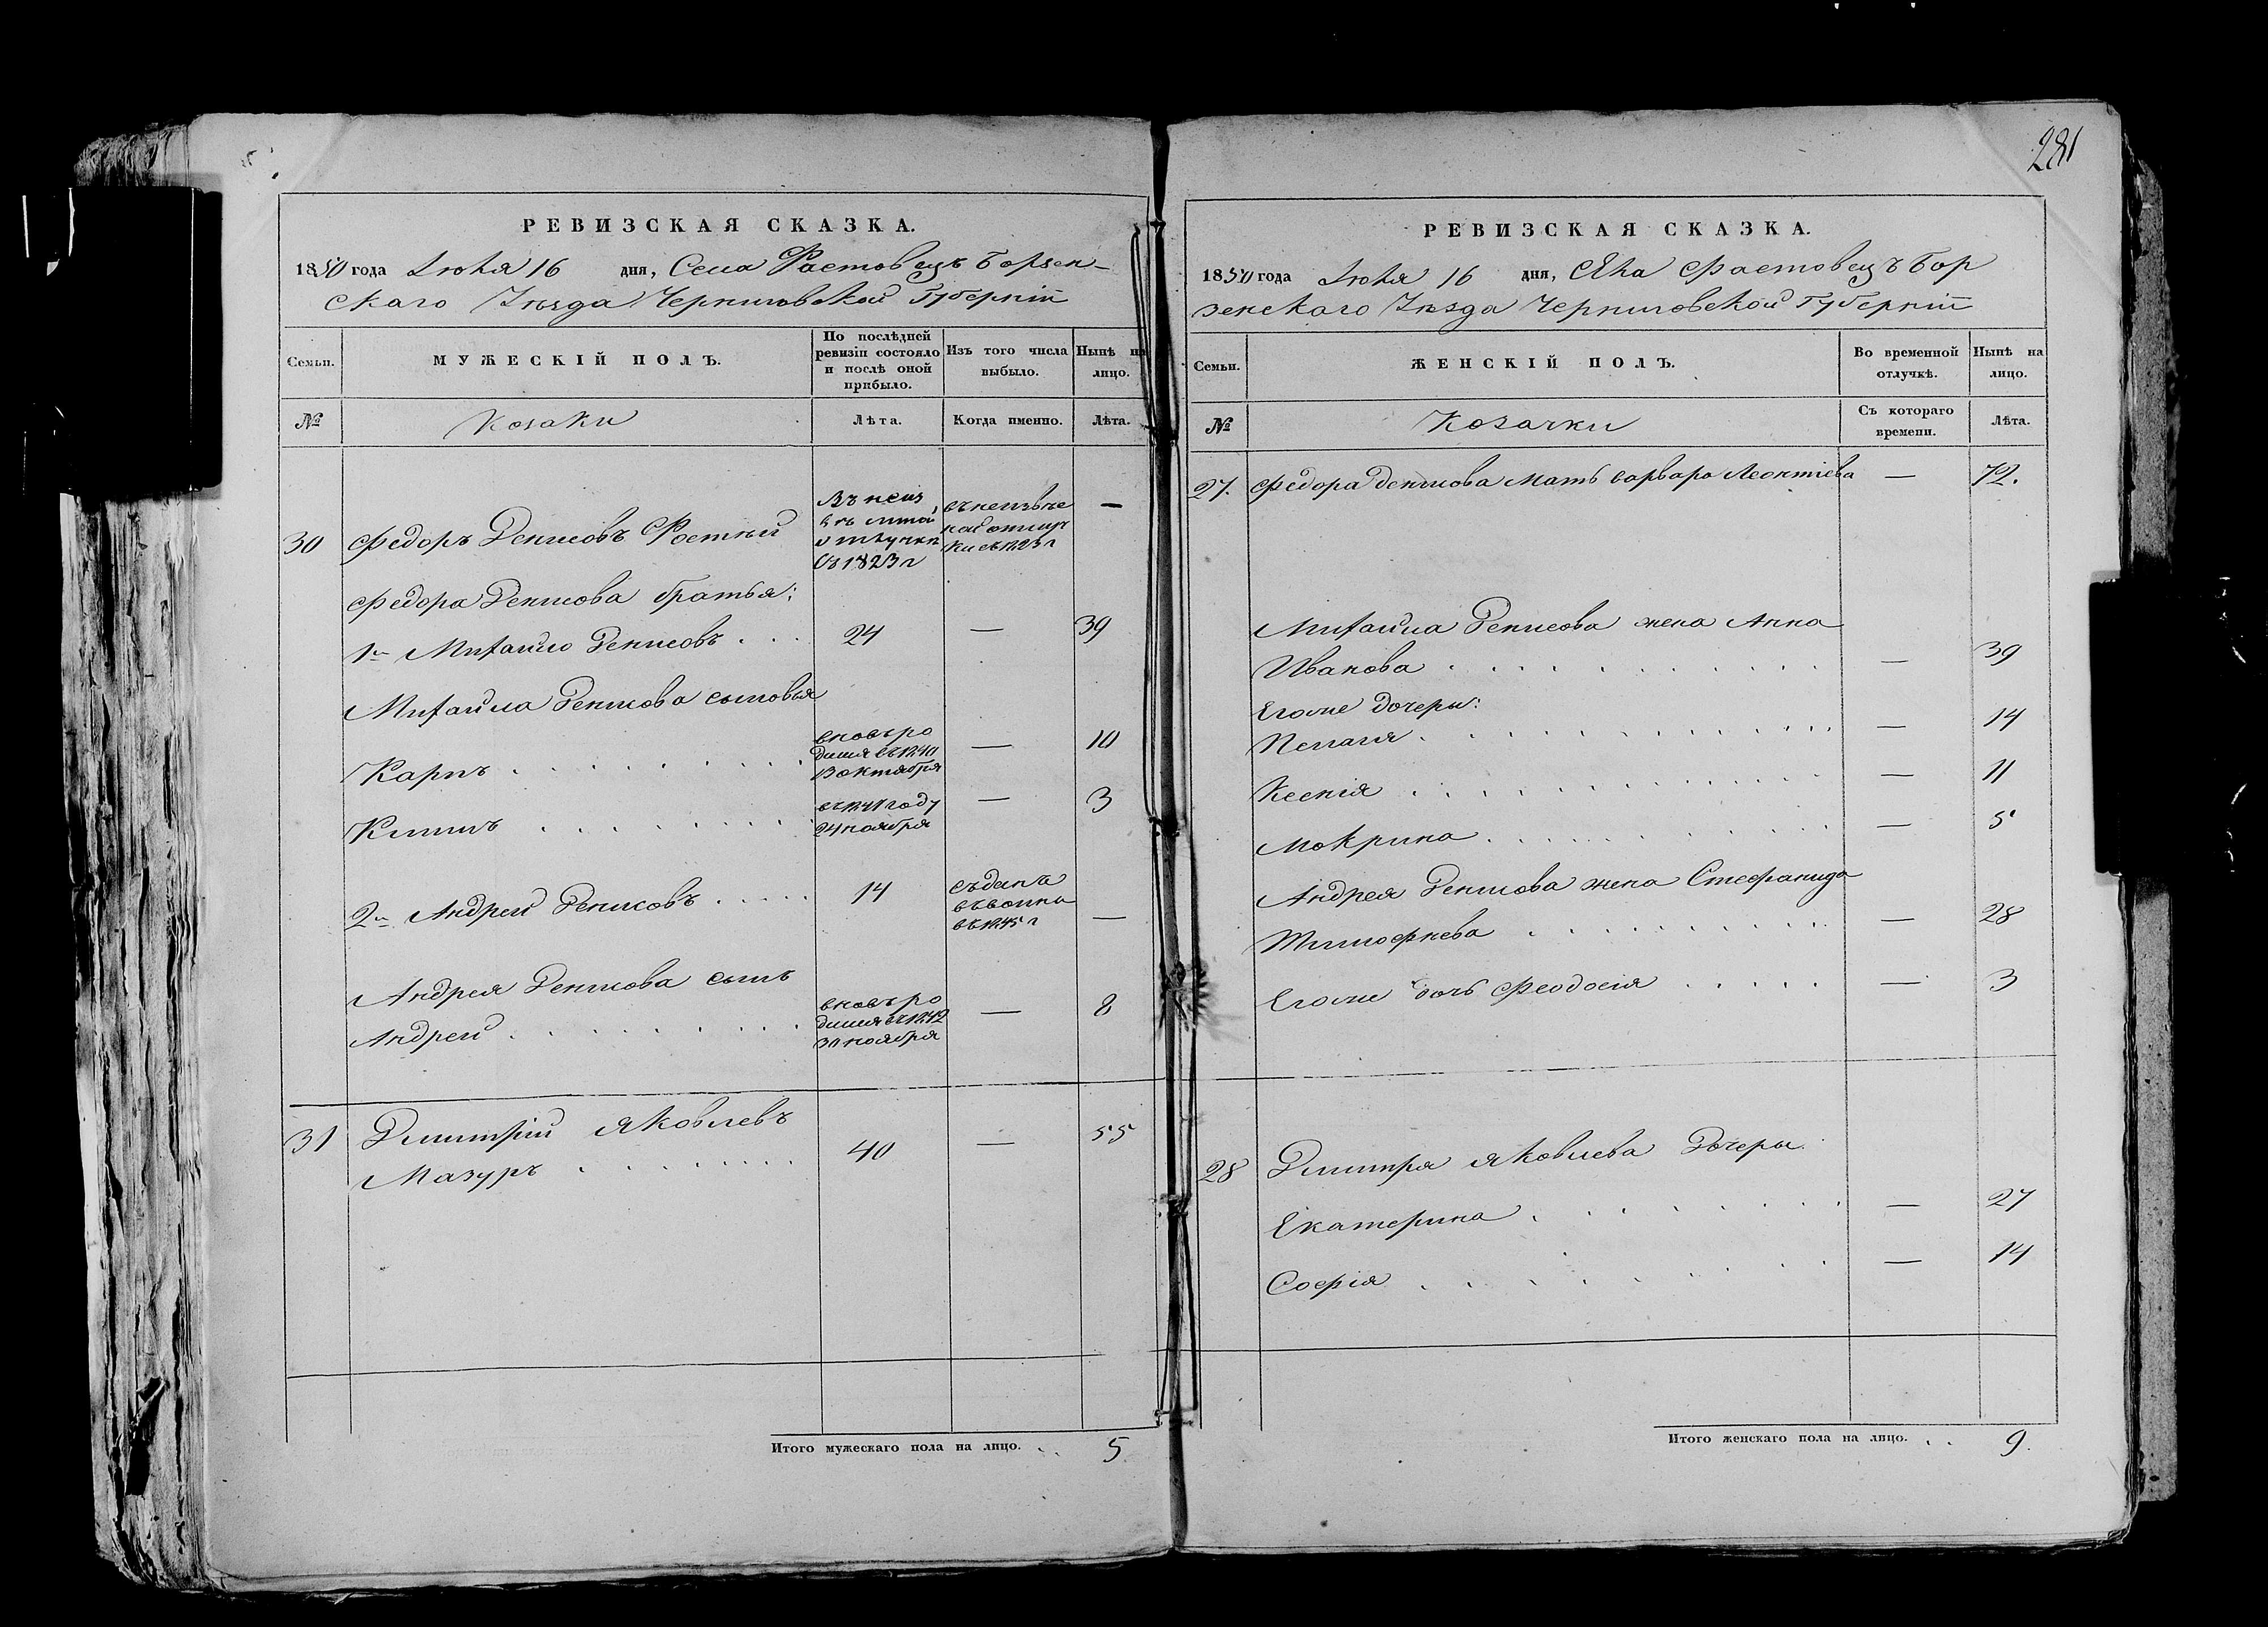 281
РЕВИЗСКАЯ СКАЗКА.
1850 года Июня 16 дня, Села Фастовецъ Борзен-
скаго Уѣзда Черниговской Губерніи
Семьи.
МУЖЕСКІЙ ПОЛЪ.
По послѣдней
ревизіи состояло
и послѣ оной
прибыло.
Изъ того числа
выбыло.
Нынѣ на
лицо.
№
Козаки
Лѣта.
Когда именно.
Лѣта.
30 Федоръ Денисовъ
Въ неиз
вѣстной
отлучкѣ
съ 1823 г
въ неизвѣс
ной отлуч
ки съ 1823 г
—
Федора Денисова братья:
1й Михайло Денисовъ . . . 24 — 39
Михайла Денисова сыновья
Карпъ . . . . . . . . .
вновь ро
дился въ 1840
13 октября
— 10
Климъ . . . . . . . .
24 ноября
— 3
2й Андрей Денисовъ . . . . . 14
въ 1845 г
—
Андрея Денисова сынъ
Андрей . . . . . . . . .
вновь ро
дился въ 1842
30 ноября
— 8
31 Дмитрій Яковлевъ
Мазуръ . . . . . . . . 40 — 55
Итого мужескаго пола на лицо. . . 5
РЕВИЗСКАЯ СКАЗКА.
1850 года Июня 16 дня, Села Фастовецъ Бор
зенскаго Уѣзда Черниговской Губерніи
Семьи.
ЖЕНСКІЙ ПОЛЪ.
Во временной
отлучкѣ.
Нынѣ на
лицо.
№
Козачки
Съ котораго
времени.
Лѣта.
27. Федора Денисова мать Варвара Леонтіева — 72.
Михайла Денисова жена Анна
Иванова . . . . . . . . . . . — 39
Егоже дочери:
Пелагя . . . . . . . . . . . . — 14
Ксенія . . . . . . . . . . . — 11
Мокрина . . . . . . . . . . — 5
Андрея Денисова жена Стефанида
Тимофѣева . . . . . . . . . . — 28
Егоже дочь Феодосія . . . . . — 3
28 Дмитря Яковлева Дочери
Екатерина . . . . . . . . . — 27
Софія . . . . . . . . . . — 14
Итого женскаго пола на лицо. . . 9.